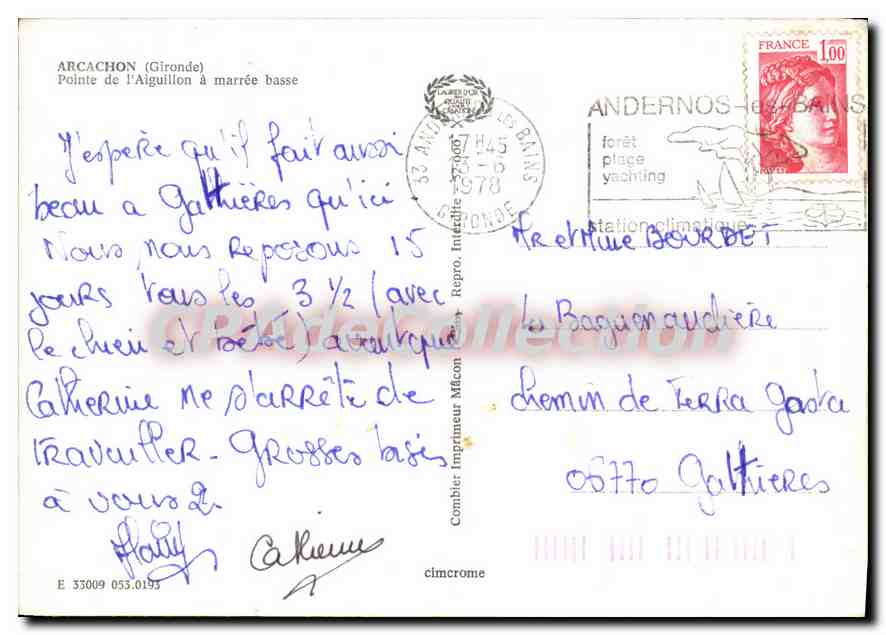 ARCACHON (Gironde)
Pointe de l'Aiguillon à marrée basse
J'espère qu'il fait aussi
beau a Gatthières qu'ici
Nous nous reposons 15
jours tous les 3 1/2 (avec
le chien et bébé) avant que
Catherine ne s'arrête de
travailler - Grosses bises
à vous 2.
Catherine
E 33009 053.0193
LAURIER D'OR
QUALITÉ
CRÉATION
Combier Imprimeur Mâcon Repro. Interdite
cimcrome
33 ANDERNOS LES BAINS
17H45
13-6
1978
GIRONDE
ANDERNOS-les-BAINS
forêt
plage
yachting
station climatique
FRANCE 1,00
Mr et Mme BOURBET
La Baguenaudière
chemin de Terra Gasta
06770 Gatthieres
CPAdeCollection.com